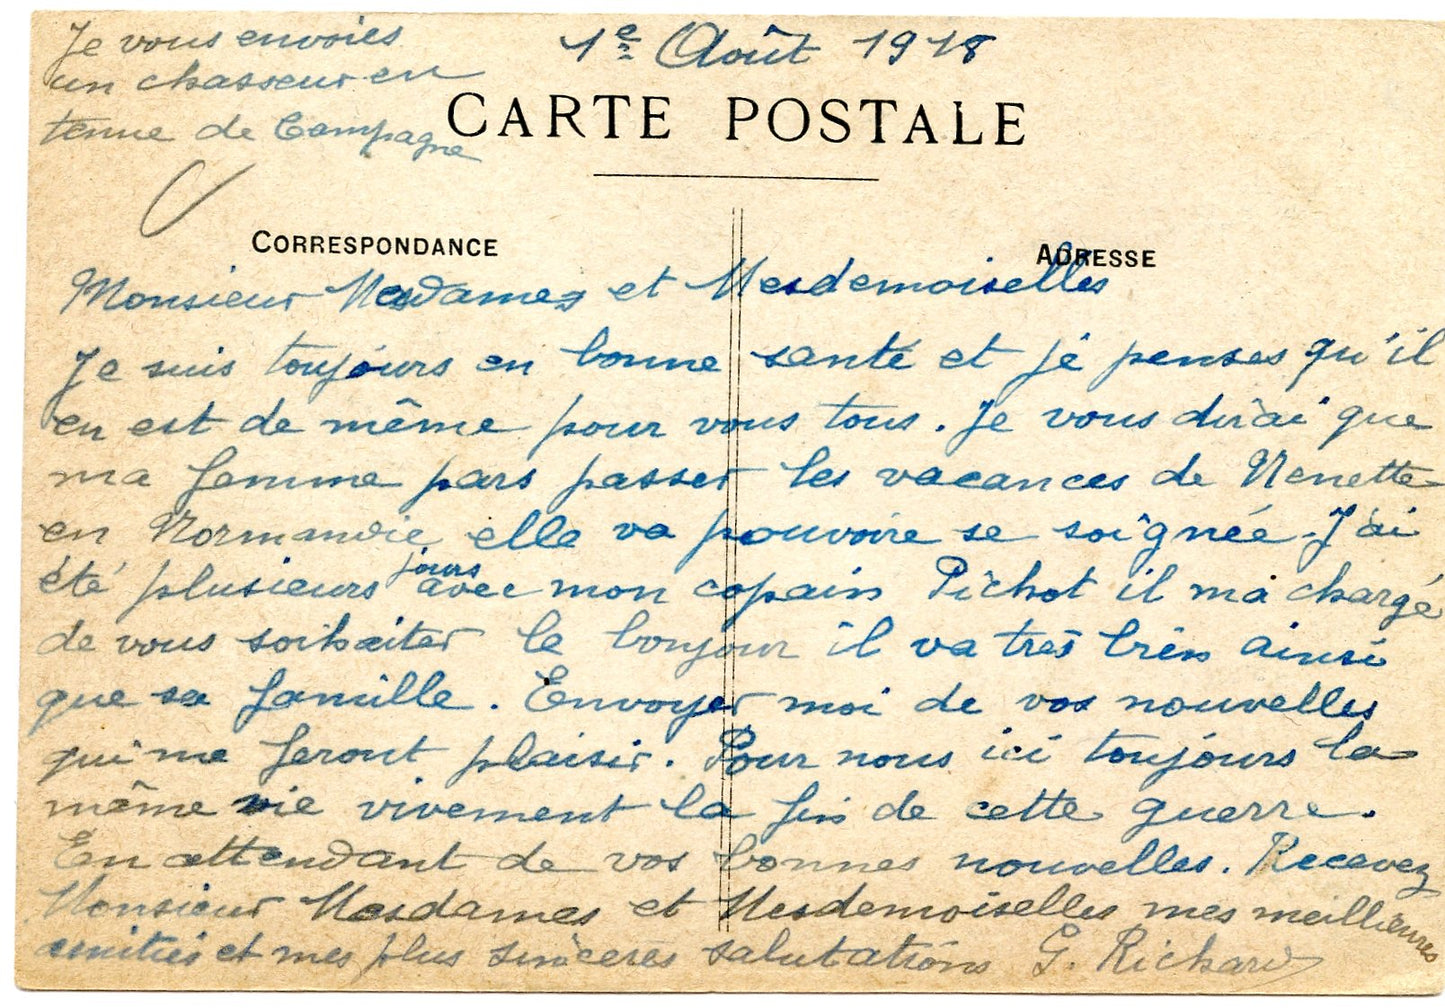 Je vous envoies
un chasseur en
tenue de Campagne
1e Août 1918
CARTE POSTALE
CORRESPONDANCE
ADRESSE
Monsieur Mesdames et Mesdemoiselles
Je suis toujours en bonne santé et je penses qu'il
en est de même pour vous tous. Je vous dirai que
ma femme pars passer les vacances de Nenette
en Normandie elle va pouvoire se soignée. J'ai
été plusieurs jours avec mon copain Pichot il ma chargé
de vous soihaiter le bonjour il va très bien ainsi
que sa famille. Envoyer moi de vos nouvelles
qui me feront plaisir. Pour nous ici toujours la
même vie vivement la fin de cette guerre.
En attendant de vos bonnes nouvelles. Recevez
Monsieur Mesdames et Mesdemoiselles mes meillieures
amitiés et mes plus sincères salutations G. Richard